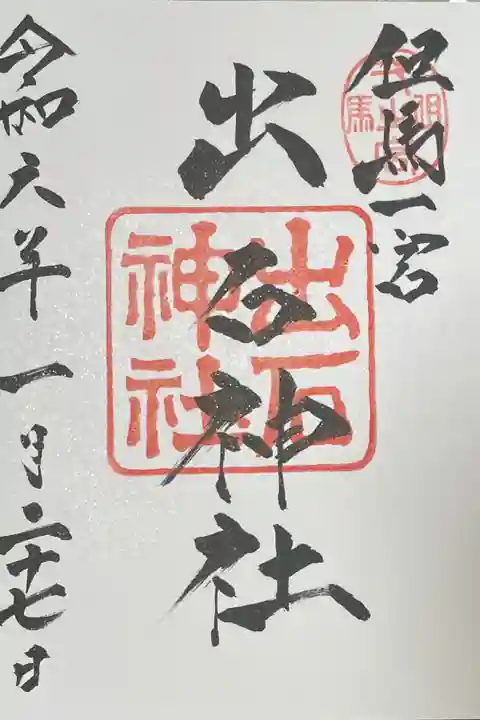 但馬一宮
出石神社
出石
神社
令和六年一月二十七日